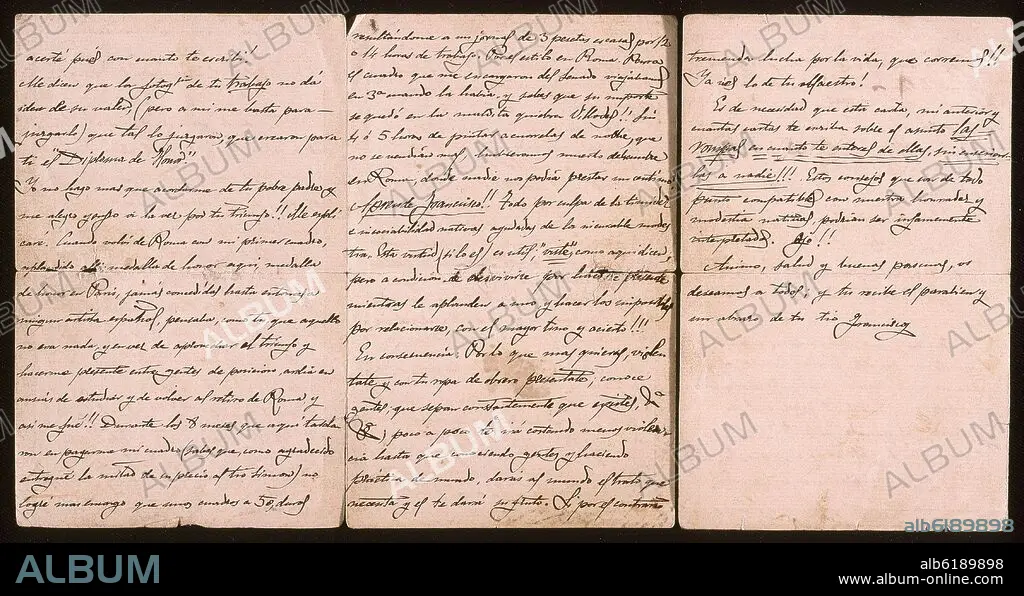 acerté pués con cuanto te escribí!
Me dicen que las fotogs de tu trabajo no dá
idea de su valía, (pero a mi me basta para
juzgarlo) que tal lo juzgaron, que crearon para
ti el "Diploma de Honor"
Yo no hago mas que acordarme de tu pobre padre &
me alegro y gozo a la vez por tu triunfo!! Me expli
caré. Cuando volví de Roma con mi primer cuadro,
aplaudido medalla de honor aquí, medalla
de honor en Paris, jamás concedidas hasta entonces a
ningun artista español, pensaba, como tu que aquello
no era nada, y en vez de aprovechar el triunfo y
hacerme presente entre gentes de posicion, ardia en
ansias de estudiar y de volver al retiro de Roma y
asi me fué!! Durante los 8 meses que aquí tarda
ron en pagarme mi cuadro (sabes que, como agradecido
entregué la mitad de su precio al tio Simon) no
logré mas encargo que unos cuadros a 50 duros
resultándome a un jornal de 3 pesetas escasas por 12
o 14 horas de trabajo. Por el estilo en Roma. Para
el cuadro que me encargaron del Senado viajabamos
en 3ª cuando la habia, y sabes que su importe
se quedó en la maldita quiebra Villodas!! Sin
4 ó 5 horas de pintar acuarelas de noche, que
no se vendian mal hubieramos muerto de hambre
en Roma, donde nadie no podria prestar un centimo
Aprende Francisco!! Todo por culpa de la timidez
é insociabilidad nativas ayudadas de la incurable modes
tia. Esta virtud (si lo es) es util, "viste", como aqui dicen,
pero a condicion de
mientras le aplauden a uno, y hacer los imposibles
por relacionarse, con el mayor tino y acierto!!!
En consecuencia: Por lo que mas quieras, violen
tate, y con tu ropa de obrero presentate, conoce
gentes, que sepan constantemente que existes,
poco á poco te irá costando menos violen
cia hasta que conociendo gentes y haciendo
práctica de mundo, daras al mundo el trato que
necesita y el te dará su fruto. Si por el contrario
tremenda lucha por la vida, que corremos!!
Ya ves lo de tu maestro!
Es de necesidad que esta carta, mi anterior y
cuantas cartas te escriba sobre el asunto las
rompas en cuanto te enteres de ellas, sin enseñar
las a nadie!!! Estos consejos que son de todo
punto compatibles con nuestra honradez y
modestia nativas, podrian ser infamemente
interpretados. Ojo!!
Animo, salud y buenas pascuas, os
deseamos a todos, y tu recibe el parabien y
un abrazo de tu tio Francisco
ALBUM
alb6189898
ALBUM
alb6189898
www.album-online.com